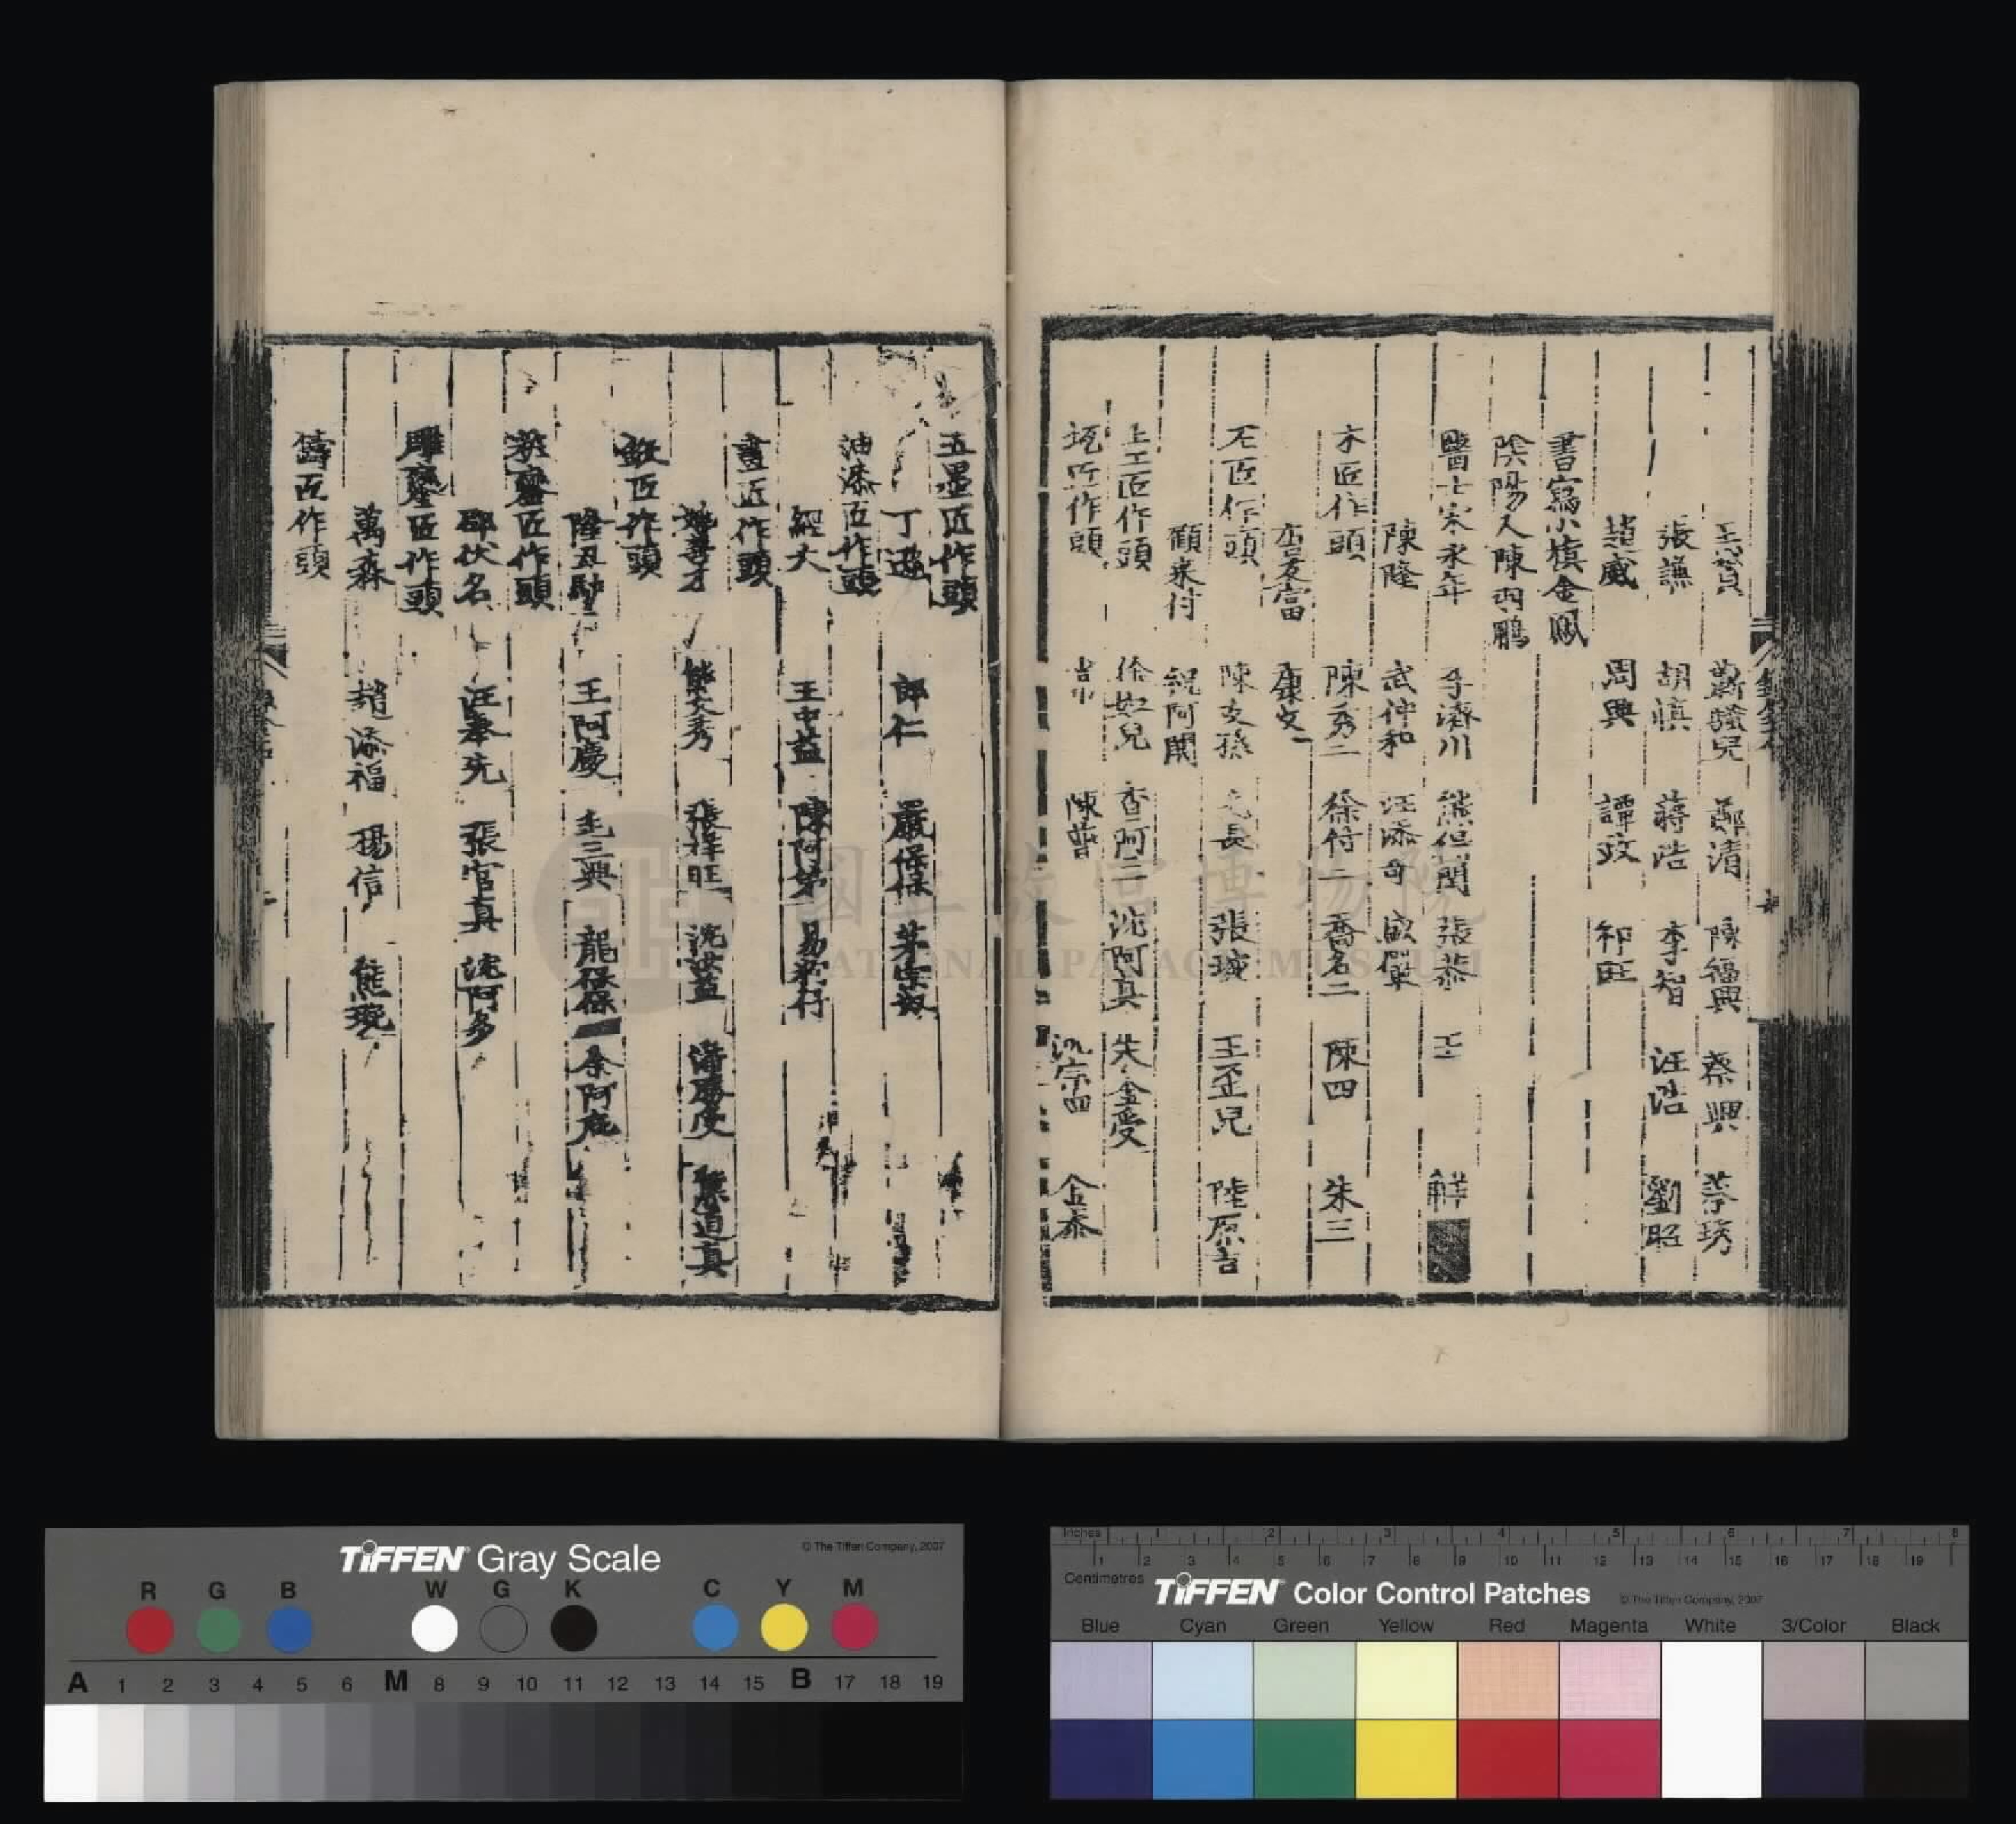 鄭清 陳福興 蔡興
張謙 胡慎 蔣浩 李智 汪浩 劉昭
趙威 周興 譚政 祁旺
書寫小旗金鳳
陰陽人陳羽鵬
醫士宋永年 李濟川 熊但閏 張恭 王 解
陳隆 武仲和 汪添奇
木匠作頭 陳秀二 徐付二 喬名二 陳四 朱三
李友富 康文
石匠作頭 陳友孫 長 張城 王歪兒 陸原吉
顧來付 祝阿関
土工匠作頭 徐奴兒 杳阿二 沈阿真 朱金受
坭匠作頭 陳普 沉宗四 金泰
五墨匠作頭
丁遜 郎仁 嚴保保
油漆匠作頭
經大 王中益 陳阿弟
畫匠作頭
姚善才 熊文秀 張擇旺 沈洪益 潘勝受 熊道真
鈒匠作頭
王阿慶 三興 龍保保 余阿
粧鑾匠作頭
邵伏名 汪奉先 張官真 沈阿多
雕鑾匠作頭
萬森 趙添福 楊信 熊
鑄匠作頭
國立故宮博物院
NATIONAL PALACE MUSEUM
TIFFEN Gray Scale
© The Tiffen Company, 2007
R G B W G K C Y M
A 1 2 3 4 5 6 M 8 9 10 11 12 13 14 15 B 17 18 19
Inches 1 2 3 4 5 6 7 8
1 2 3 4 5 6 7 8 9 10 11 12 13 14 15 16 17 18 19
Centimetres
TIFFEN Color Control Patches
© The Tiffen Company, 2007
Blue Cyan Green Yellow Red Magenta White 3/Color Black